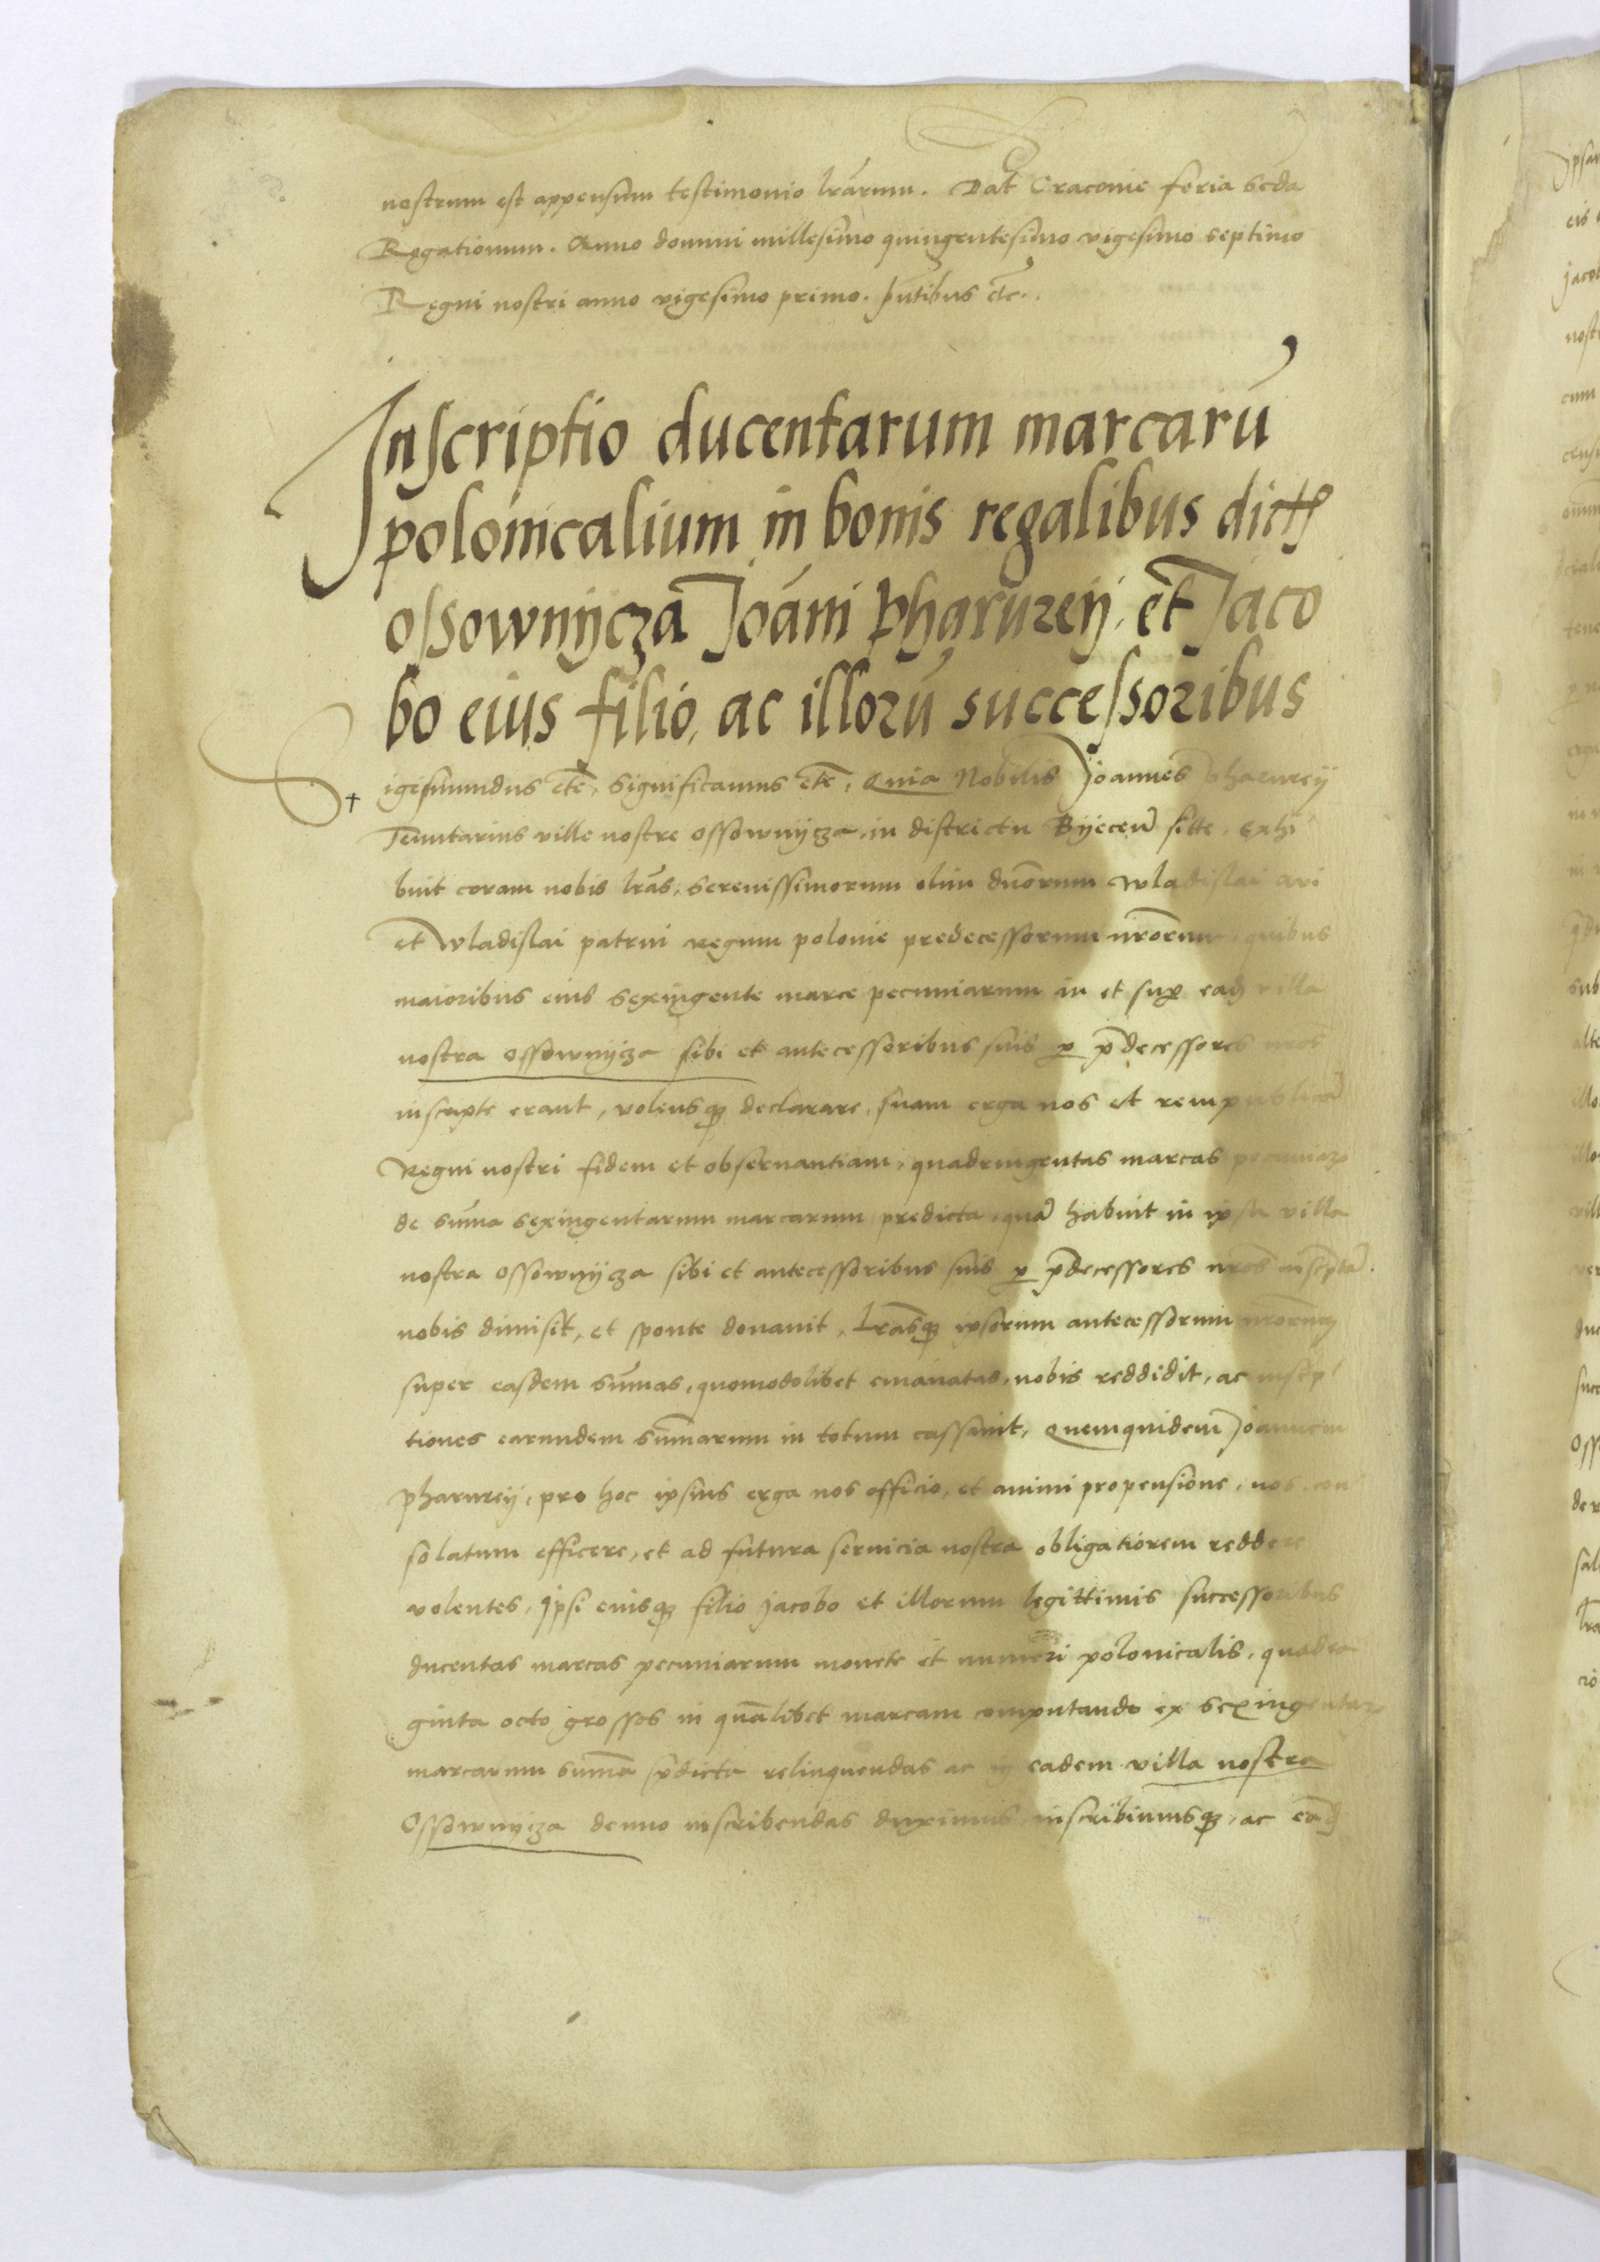 nostrum est appensum testimonio lrarum. Dat Cracovie feria scda
Rogationum. Anno domini millesimo quingentesimo vigesimo septimo
Regni nostri anno vigesimo primo. pntibus etc.
Inscriptio ducentarum marcarū
polonicalium in bonis regalibus dict
ossownycza Joāni Pharurey, et Jaco
bo eius filio, ac illorū successoribus
Sigesmundus etc, Significamus etc, Quia Nobilis Joannes Pharurey
Tenutarius ville nostre ossownycza, in districtu Byecen sitte, exhi
buit coram nobis lras, serenissimorum olim duorum wladislai avi
et Wladislai patrui Regum polonie predecessorum nrorum quibus
maioribus eius sexingente marce pecuniarum in et sup ead villa
nostra ossownycza sibi et antecessoribus suis p pdecessores nros
inscripte erant, volensq declarare, suam erga nos et rempublica
Regni nostri fidem et observantiam, quadringentas marcas pecuniar
de suma sexingentarum marcarum predicta, qua habuit in ipsa villa
nostra ossownycza sibi et antecessoribus suis p pdecessores nros inscpta.
nobis dimisit, et sponte donavit, lrasq ipsorum antecessorum nrorum
super easdem sumas, quomodolibet emanatas, nobis reddidit, ac inscip
tiones earundem sumarum in totum cassavit, Quemquidem Joannem
Pharurey, pro hoc ipsius erga nos officio, et animi propensione, nos con
solatum efficere, et ad futura servicia nostra obligatiorem reddere
volentes, Ipsi eiusq filio Jacobo et illorum legittimis successoribus
ducentas marcas pecuniarum monete et numeri polonicalis, quadra
ginta octo grossos in qualibet marcam computando ex sexingentar
marcarum suma pdicta relinquendas ac in eadem villa nostra
Ossownycza denuo inscribendas duximus inscribimusq, ac ead